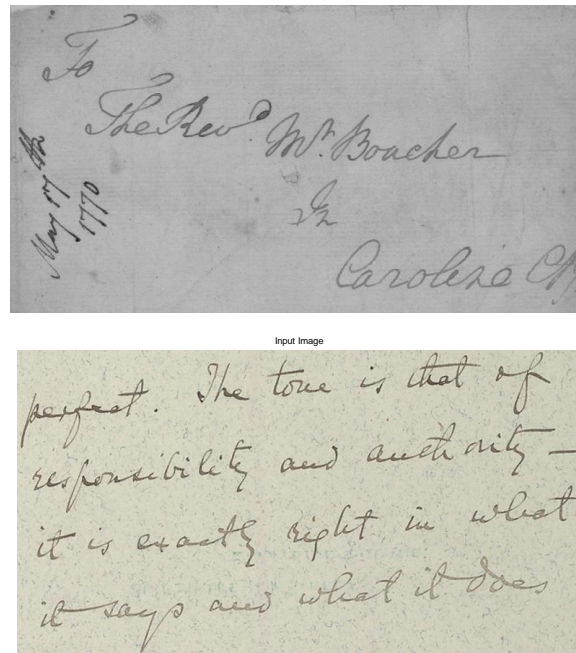 To
The Revd. Mr. Boucher
In
Caroline Cty
May 17th
1770
Input Image
perfect. The tone is that of
responsibility and authority —
it is exactly right in what
it says and what it does